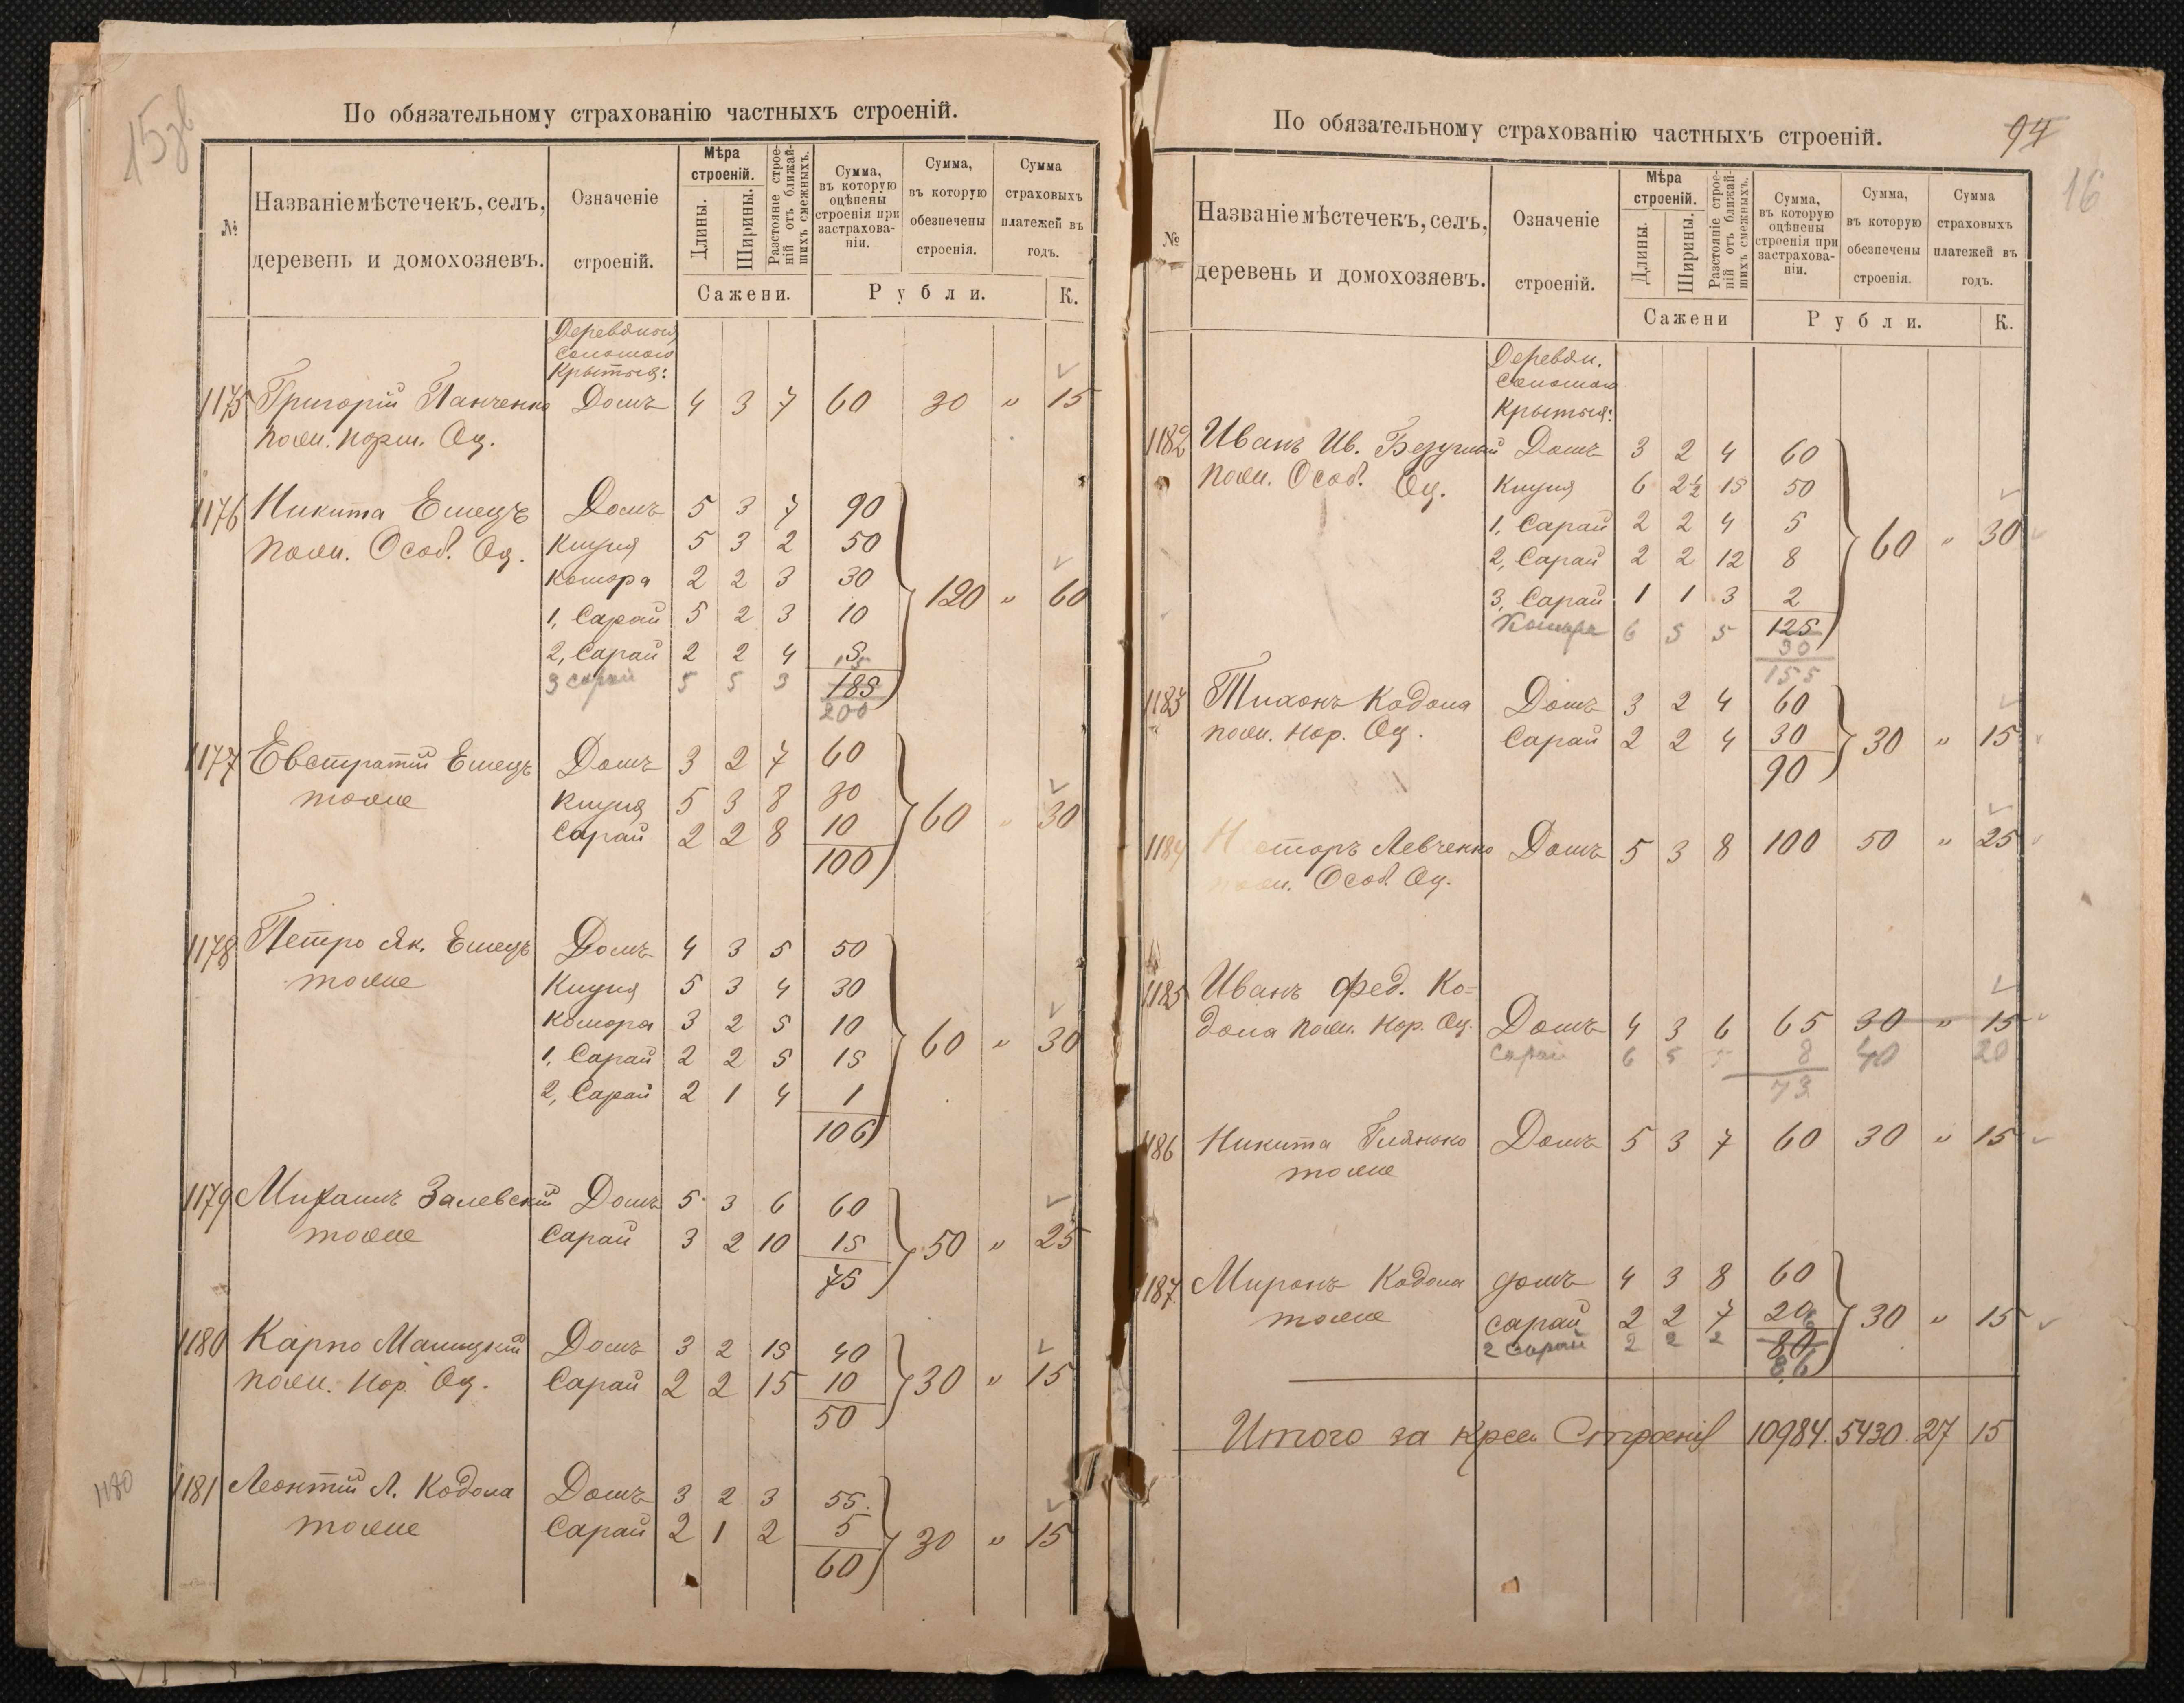 15 зв
По обязательному страхованію частныхъ строеній.
№
Названіе мѣстечекъ, селъ, деревень и домохозяевъ.
Означеніе строеній.
Мѣра строеній.
Длины.
Ширины.
Разстояніе строе-
ній отъ ближай-
шихъ смежныхъ.
Сажени.
Сумма, въ которую оцѣнены строенія при застрахова-
ніи.
Сумма, въ которую обезпечены строенія.
Сумма страховыхъ платежей въ годъ.
Рубли.
К.
Деревяныя
Соломою
Крытыя:
1175 Григорій Панченко Домъ 4 3 7 60 30 " 15
полн. норм. Оц.
1176 Никита Емецъ Домъ 5 3 7 90
полн. Особ. Оц. Клуня 5 3 2 50
Комора 2 2 3 30
120 " 60
1, Сарай 5 2 3 10
2, Сарай 2 2 4 5
3 сарай 5 5 3 15
185
200
1177 Евстратій Емецъ Домъ 3 2 7 60
тоже Клуня 5 3 8 30
60 " 30
Сарай 2 2 8 10
100
1178 Петро Як. Емецъ Домъ 4 3 5 50
тоже Клуня 5 3 4 30
Комора 3 2 5 10
60 " 30
1, Сарай 2 2 5 15
2, Сарай 2 1 4 1
106
1179 Михаилъ Залевскій Домъ 5 3 6 60
тоже Сарай 3 2 10 15 50 " 25
75
1180 Карпо Домъ 3 2 15 40
полн. Нор. Оц. Сарай 2 2 15 10 30 " 15
50
1180
1181 Леонтій Л. Кодола Домъ 3 2 3 55
тоже Сарай 2 1 2 5 30 " 15
60
94
16
По обязательному страхованію частныхъ строеній.
№
Названіе мѣстечекъ, селъ, деревень и домохозяевъ.
Означеніе строеній.
Мѣра строеній.
Длины.
Ширины.
Разстояніе строе-
ній отъ ближай-
шихъ смежныхъ.
Сажени
Сумма, въ которую оцѣнены строенія при застрахова-
ніи.
Сумма, въ которую обезпечены строенія.
Сумма страховыхъ платежей въ годъ.
Рубли.
К.
Деревян.
Соломою
Крытыя:
1182 Иванъ Ив. Безуглый Домъ 3 2 4 60
полн. Особ. Оц. Клуня 6 2½ 15 50
1, Сарай 2 2 4 5
60 " 30
2, Сарай 2 2 12 8
3, Сарай 1 1 3 2
Комора 6 5 5 125
30
155
1183 Тихонъ Кодола Домъ 3 2 4 60
полн. Нор. Оц. Сарай 2 2 4 30 30 " 15
90
1184 Несторъ Левченко Домъ 5 3 8 100 50 " 25
полн. Особ. Оц.
1185 Иванъ Фед. Ко=
дола полн. Нор. Оц. Домъ 4 3 6 65 30 " 15
сарай 6 5 5 8 40 20
73
1186 Никита Домъ 5 3 7 60 30 " 15
тоже
1187 Миронъ Кодола домъ 4 3 8 60
тоже сарай 2 2 7 20 30 " 15
2 сарай 2 2 2 6
80
86
Итого за Строенія 10984. 5430. 27 15